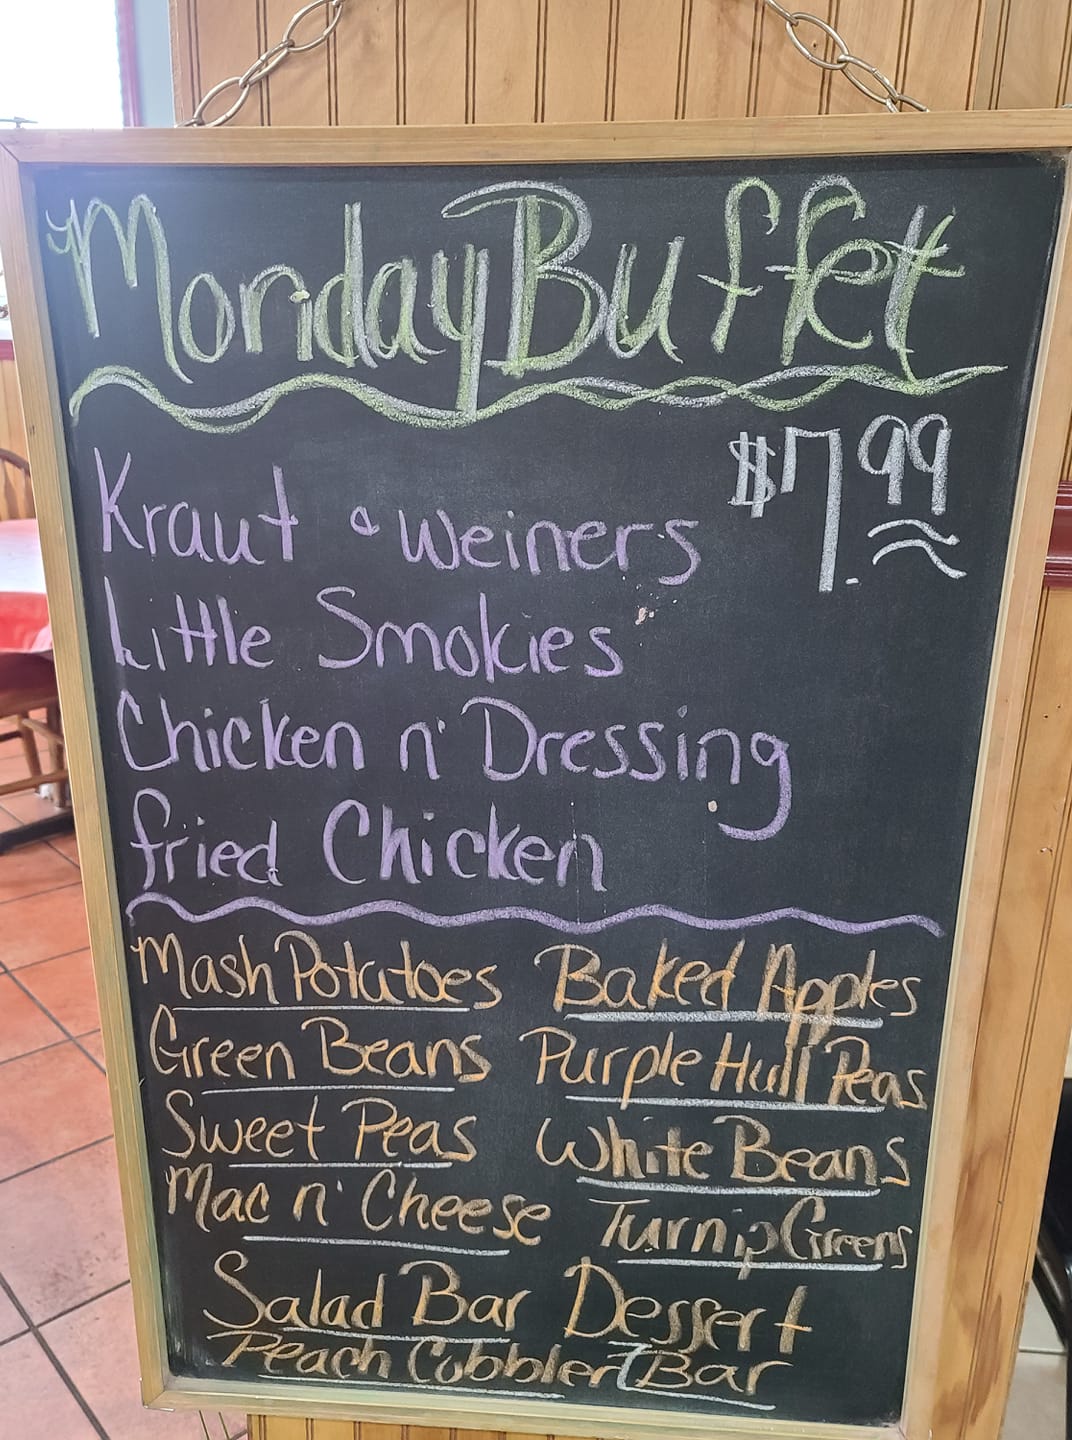 Monday Buffet
$7.99
Kraut & Weiners
Little Smokies
Chicken n' Dressing
fried Chicken
Mash Potatoes Baked Apples
Green Beans Purple Hull Peas
Sweet Peas White Beans
Mac n' Cheese Turnip Greens
Salad Bar Dessert
Peach Cobbler Bar